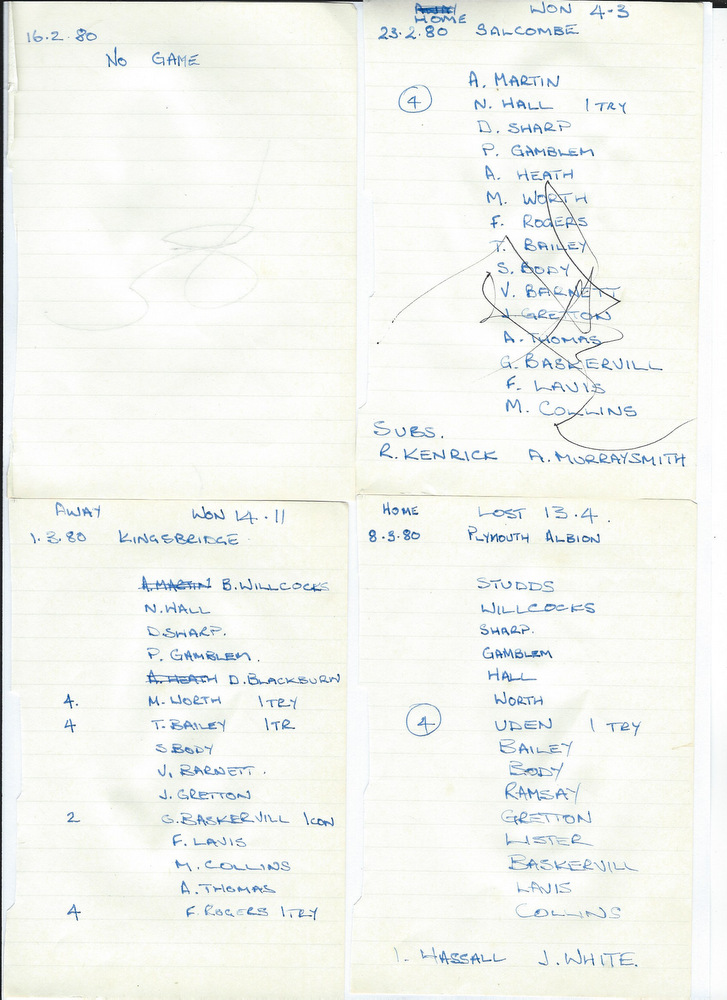 16.2.80
NO GAME
AWAY HOME WON 4-3
23.2.80 SALCOMBE
A. MARTIN
4 N. HALL 1 TRY
D. SHARP
P. GAMBLEM
A. HEATH
M. WORTH
F. ROGERS
T. BAILEY
S. BODY
V. BARNETT
J. GRETTON
A. THOMAS
G. BASKERVILL
F. LAVIS
M. COLLINS
SUBS.
R. KENRICK A. MURRAYSMITH
AWAY WON 14.11
1.3.80 KINGSBRIDGE
A. MARTIN B. WILLCOCKS
N. HALL
D. SHARP.
P. GAMBLEM.
A. HEATH D. BLACKBURN
4. M. WORTH 1 TRY
4 T. BAILEY 1 TR
S. BODY
V. BARNETT.
J. GRETTON
2 G. BASKERVILL 1 CON
F. LAVIS
M. COLLINS
A. THOMAS
4 F. ROGERS 1 TRY
HOME LOST 13.4.
8.3.80 PLYMOUTH ALBION
STUDDS
WILLCOCKS
SHARP.
GAMBLEM
HALL
WORTH
4 UDEN 1 TRY
BAILEY
BODY
RAMSAY
GRETTON
LISTER
BASKERVILL
LAVIS
COLLINS
I. HASSALL J. WHITE.